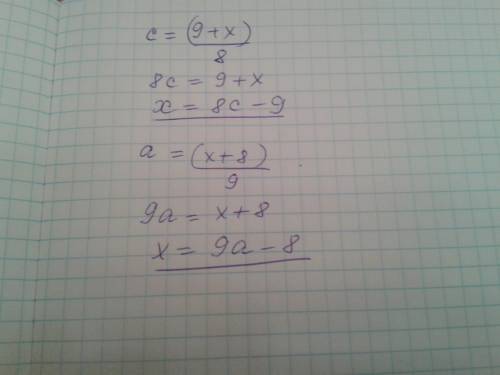 c = (9+x)/8
8c = 9+x
x = 8c-9
a = (x+8)/9
9a = x+8
x = 9a-8